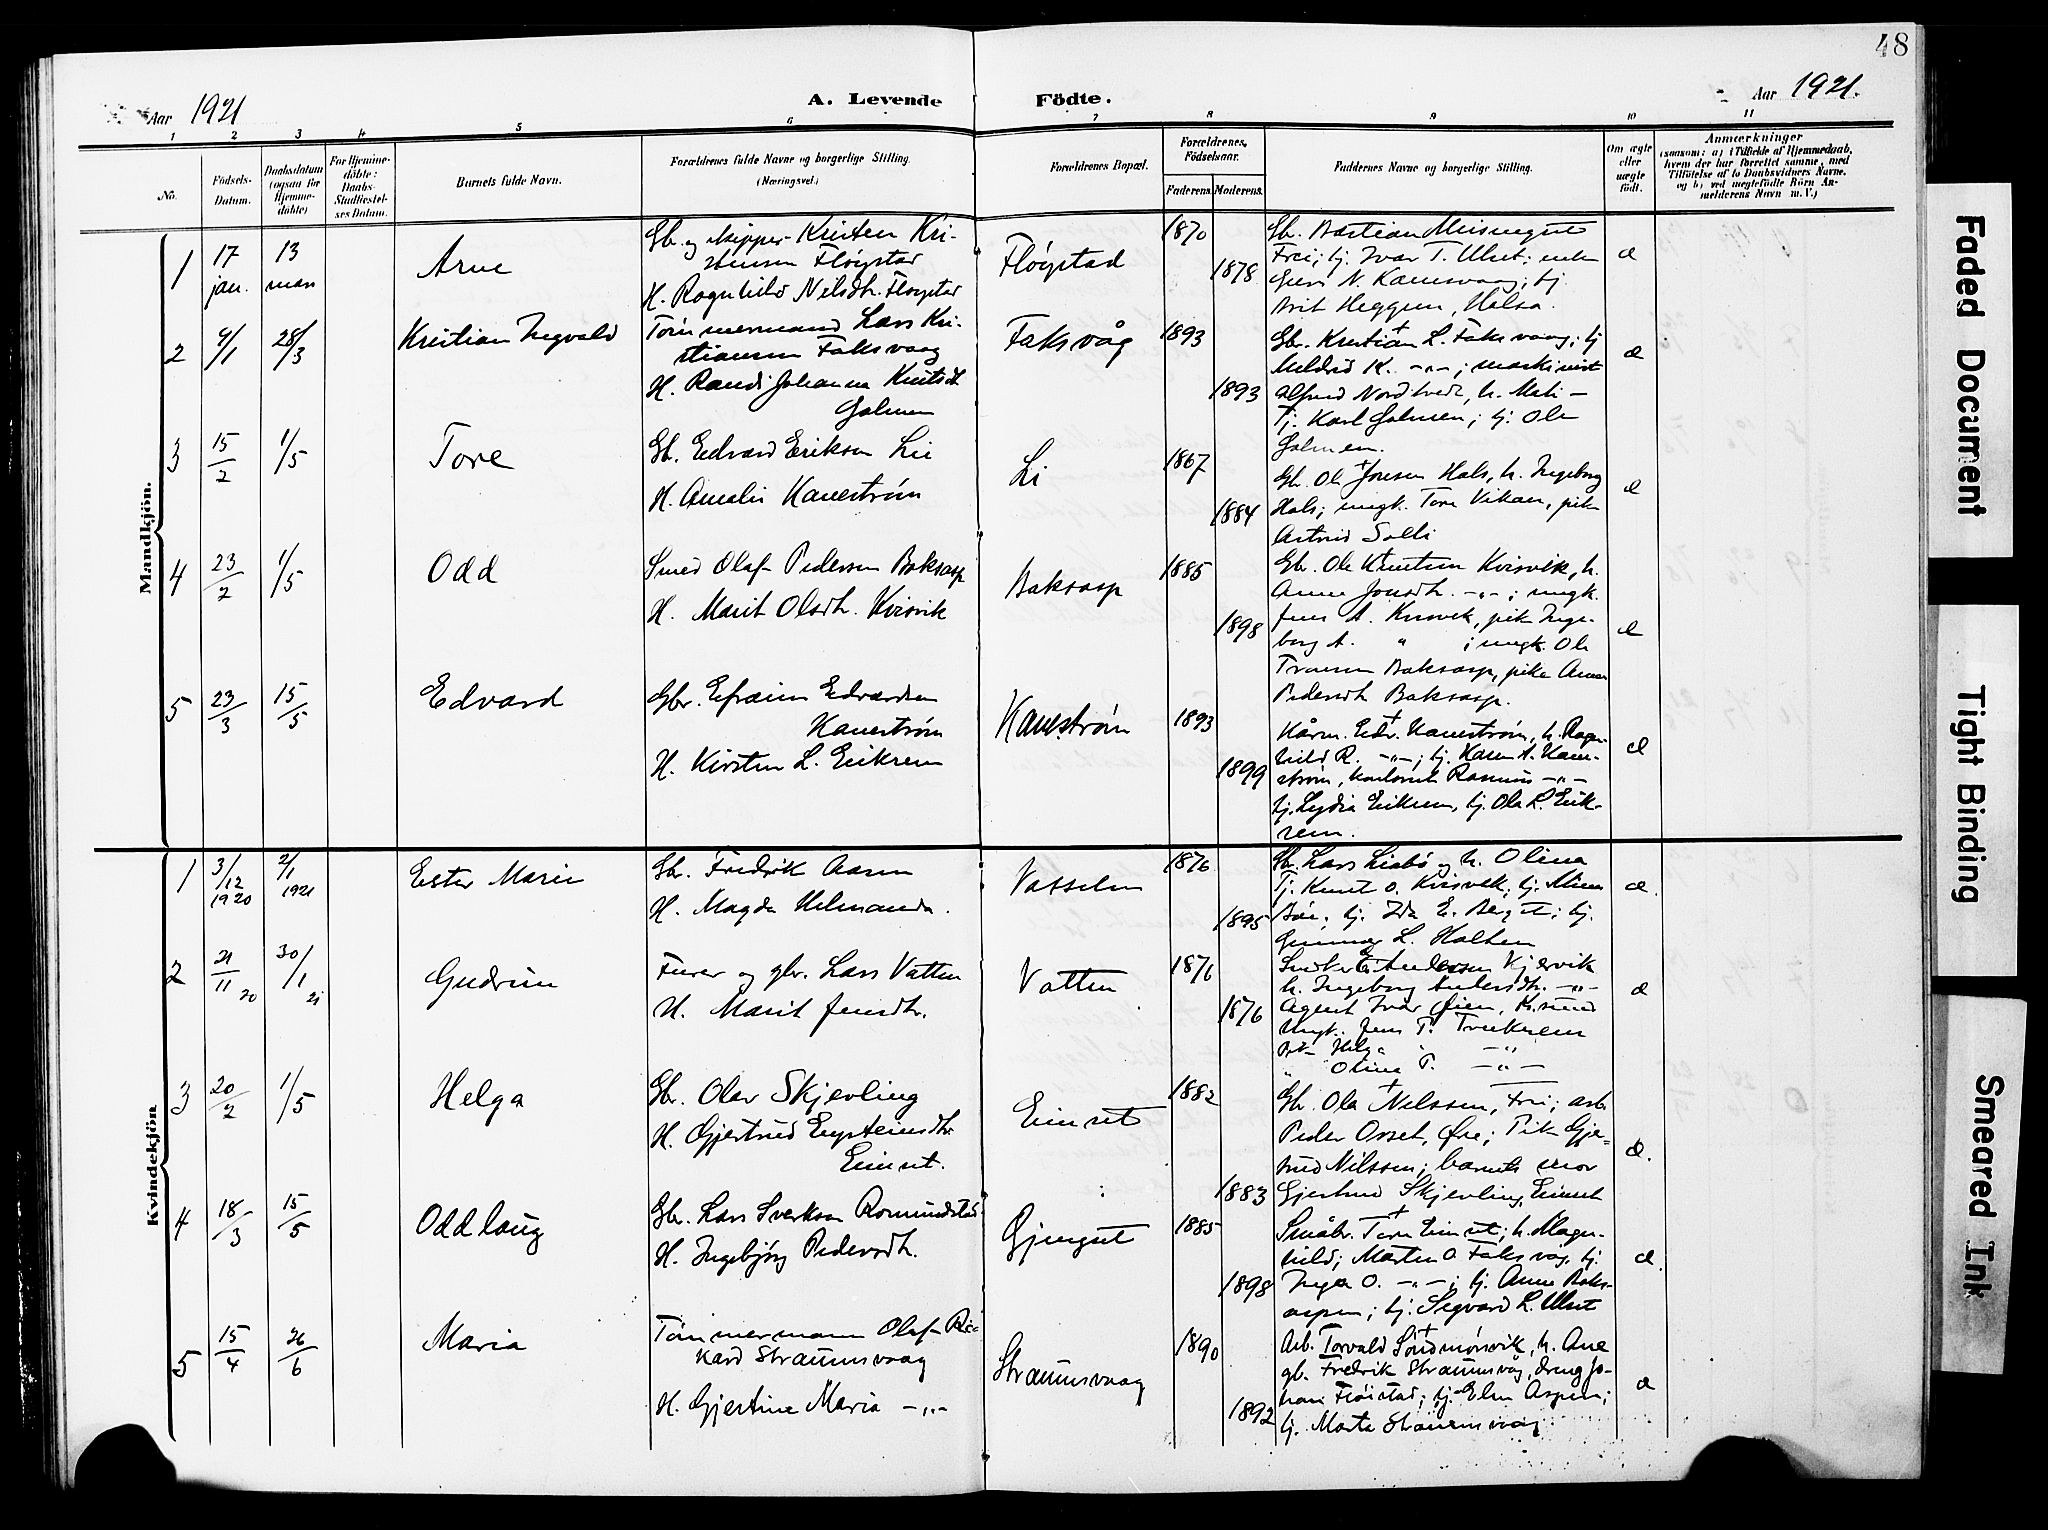 48
Aar 1921
A. Levende Födte.
Aar 1921.
1 2 3 4 5 6 7 8 9 10 11
No.
Födsels-Datum.
Daabsdatum (ogsaa for Hjemme-döbte)
For Hjemme-döbte: Daabs-Stadfæstel-ses Datum.
Barnets fulde Navn.
Forældrenes fulde Navne og borgerlige Stilling.
(Næringsvei.)
Forældrenes Bopæl.
Forældrenes Födselsaar.
Faderens. Moderens.
Faddernes Navne og borgerlige Stilling.
Om ægte eller uægte födt.
Anmærkninger
(saasom: a) i Tilfælde af Hjemmedaab,
hvem der har forrettet samme, med
Tilföielse af to Daabsvidners Navne.
og b) ved uægtefödte Börn An-
melderens Navn m. V.)
Mandkjön.
1 17 jan. 13 mars Arne
Gb. og skipper Kristen Kri-
stensen Fløystad
H. Ragnhild Nelsdtr. Fløystad
Fløystad 1870 1878
Frei; tj. Ivar T. Ulset;
Brit Heggem, Halsa.
æ
2 9/1 28/3 Kristian Ingvald
Tømmermand Lars Kri-
stiansen Faksvaag
H. Randi Johanna Knutsdt.
Holmen
Faksvåg 1893 1893
Gbr. Kristian L. Faksvaag; tj
Meldrid K. -"-; maskinist
Alfred Nordtvedt, h. Mali -
Tj. Karl Holmen; tj. Ole
Holmen.
æ
3 15/2 1/5 Tore
Gb. Edvard Eriksen Lii
H. Amalie Kanestrøm
Li 1867 1884
Gbr. Ole Jonsen Hals, h. Ingeborg
Hals; ungk. Tore Vikan, pike
Astrid Solli
æ
4 23/2 1/5 Odd
Smed Olaf Pedersen Baksasp
H. Marit Olsdtr. Kvisvik
Baksasp 1885 1898
Gbr. Ole Knutsen Kvisvik, h.
Anne Jonsdtr. -"-; ungk.
Jens A. Kvisvik, pike Inge-
borg A. " ; ungk. Ole
Baksasp, pike Anne
Pedersdtr Baksasp.
æ
5 23/3 15/5 Edvard
Gbr. Efraim Edvardsen
Kanestrøm
H. Kirsten L. Eikrem
Kanestrøm 1893 1899
Kårm. Edv. Kanestrøm, h. Ragn-
hild R. -"-; tj. Karen A. Kane-
strøm, Rasmus -"-
tj. Lydia Eikrem, tj. Ola L. Eik-
rem.
æ
Kvindekjön
1 3/12 1920 2/1 1921 Ester Marie
Gbr. Fredrik Aasen
H. Magda Helmanda.
Vasselen 1876 1895
Gbr. Lars Liabø og h. Olina
Tj. Knut O. Kvisvik; tj.
tj. Ida E. Bergset; tj.
Gunnar L. Halten
æ.
2 21/11 20 30/1 21 Gudrun
Furer og gbr. Lars Vatten
H. Marit Jensdtr.
Vatten 1876 1876
Andersen Kjervik
h. Ingeborg Andersdtr. -"-
Agent Ivar Øien, Kr.sund
Ungk. Jens P. Trækrem
Pik. Helga " -"-
" Olina P. -"-
æ
3 20/2 1/5 Helga
Gbr. Olav Skjevling
H. Gjertrud Eysteinsdtr.
Einset.
Einset 1882 1883
Gbr. Ole Nilssen, Frei; arb.
Peder Orset, Øre; Pik. Gjer-
trud Nilssen; barnets mor
Gjertrud Skjevling, Einset
æ.
4 18/3 15/5 Oddlaug
Gbr. Lars Sverksen Romundstad.
H. Ingebjørg Pedersdtr.
Gjengset 1885 1898
Småbr. Tore Einset; h. Magn-
hild; Marten O. Faksvaag, tj.
Inga O. -"-; tj. Anne Baks-
aspen; tj. Sigvard L. Ulset
æ.
5 15/4 26/6 Maria
Tømmermann Olaf Ri-
kard Straumsvaag
H. Gjertine Maria -"-
Straumsvaag 1890 1892
Arb. Torvald Søndmørsvik, h. Ane
gb. Fredrik Straumsvåg, dreng Jo-
han Fløistad; tj. Elen Aspen;
tj. Marta Straumsvaag
æ
Faded Document
Tight Binding
Smeared Ink